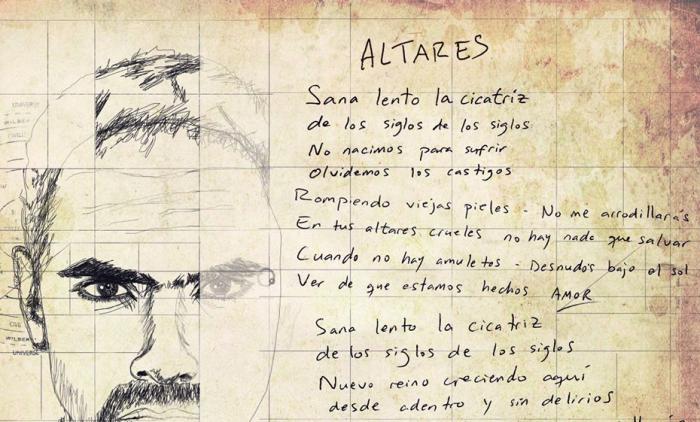 ALTARES
Sana lento la cicatriz
de los siglos de los siglos
No nacimos para sufrir
Olvidemos los castigos
Rompiendo viejas pieles - No me arrodillarás
En tus altares crueles no hay nada que salvar
Cuando no hay amuletos - Desnudos bajo el sol
Ver de que estamos hechos AMOR
Sana lento la cicatriz
de los siglos de los siglos
Nuevo reino creciendo aquí
desde adentro y sin delirios
UNIVERSE
WILBER
CIVIL
WILBER
UNIVERSE